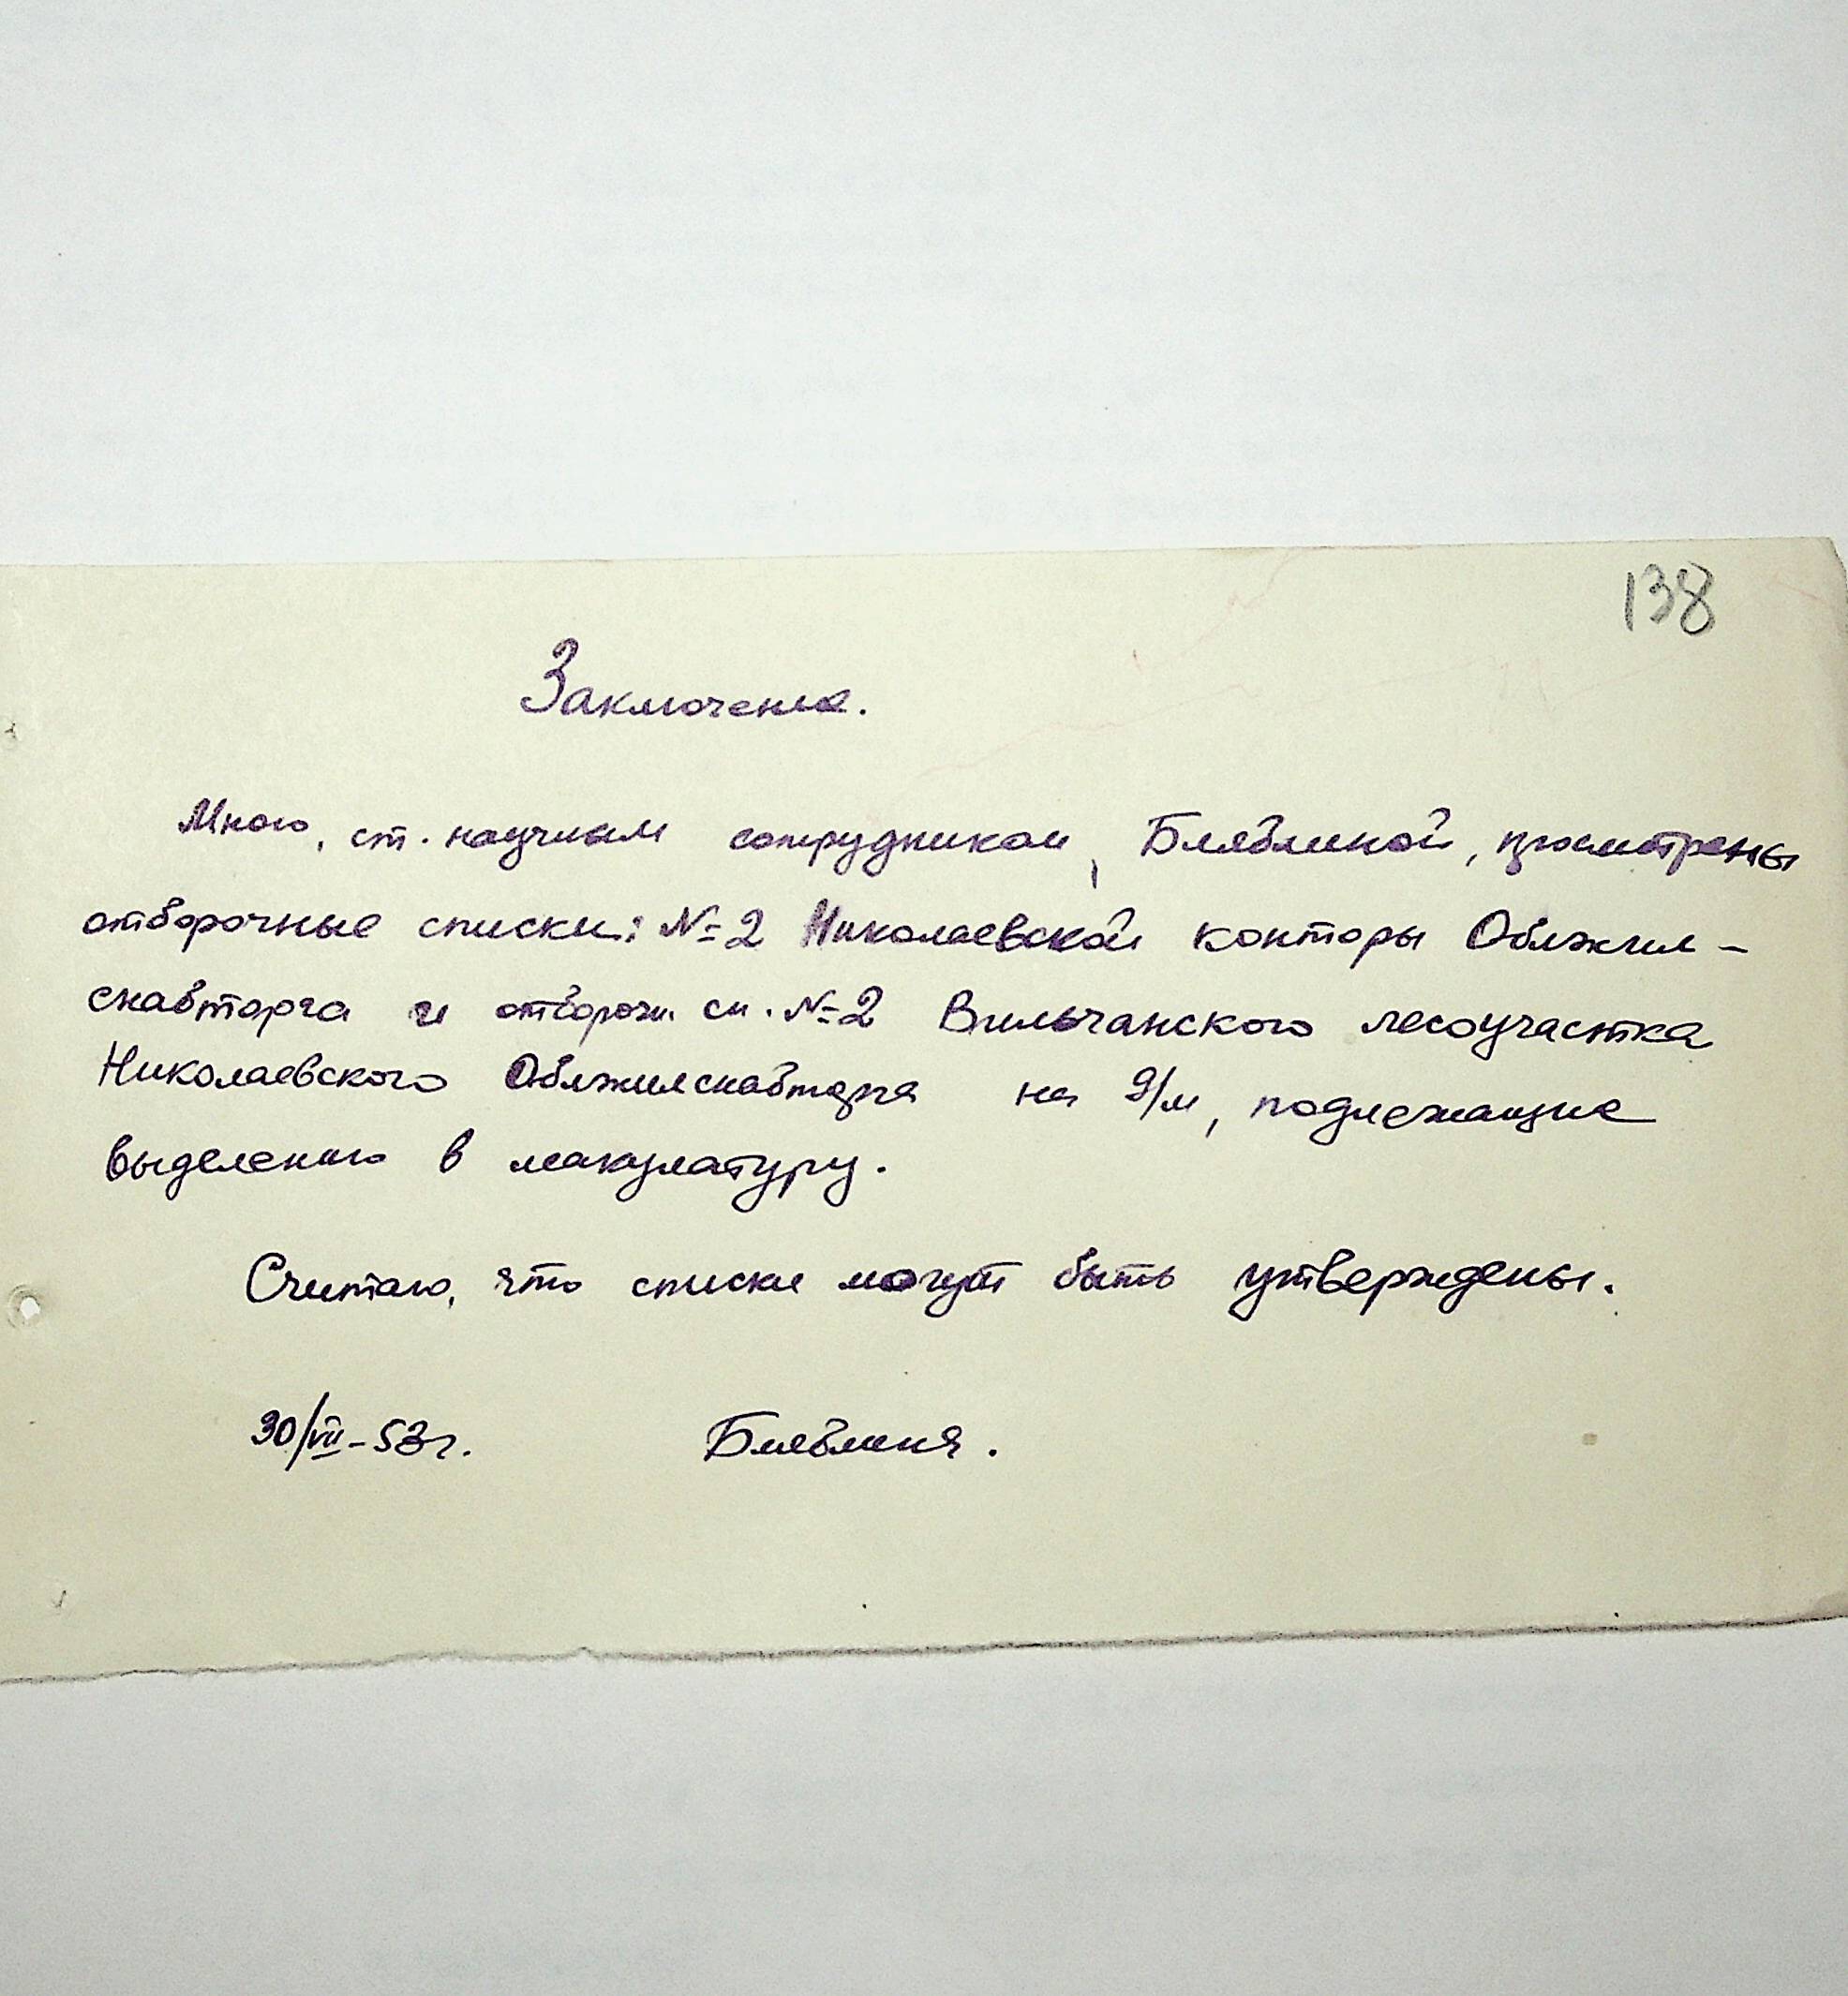 138
Заключение.
Мною, ст. научным сотрудником, Бляблиной, просмотрены
отборочные списки: №2 Николаевской конторы Облжил-
снабторга и отборочн сп. №2 Вильчанского лесоучастка
Николаевского Облжилснабторга на д/м, подлежащие
выделению в макулатуру.
Считаю, что списки могут быть утверждены.
30/VII-53г. Бляблина.